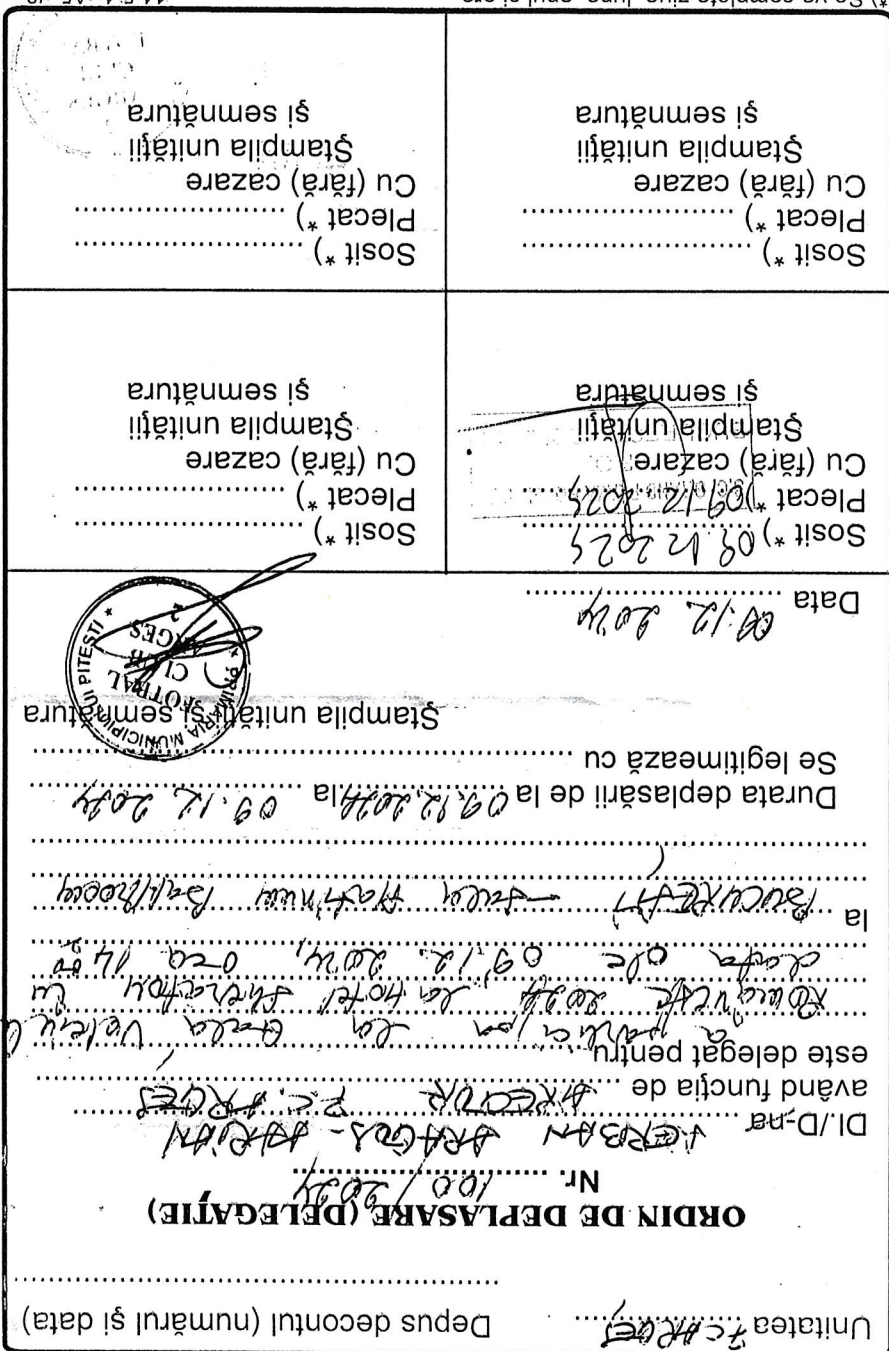 Unitatea F.C. ARGEȘ
Depus decontul (numărul și data)
ORDIN DE DEPLASARE (DELEGAȚIE)
Nr. 100/2024
Dl./D-na ȘERBAN DRAGOȘ-ADRIAN
având funcția de DIRECTOR F.C. ARGEȘ
este delegat pentru
a participa la Gala
2024 la Hotel Sheraton cu
data de 09.12.2024, ora 14 00
la BUCUREȘTI - sala Platinum Ballroom
Durata deplasării de la 09.12.2024 la 09.12.2024
Se legitimează cu
Ștampila unității și semnătura
PRIMĂRIA MUNICIPIULUI PITEȘTI
FOTBAL
CLUB
ARGEȘ
2
Data 09.12.2024
Sosit *) 09.12.2024
Plecat *) 09.12.2024
Cu (fără) cazare
Ștampila unității
și semnătura
Sosit *)
Plecat *)
Cu (fără) cazare
Ștampila unității
și semnătura
Sosit *)
Plecat *)
Cu (fără) cazare
Ștampila unității
și semnătura
Sosit *)
Plecat *)
Cu (fără) cazare
Ștampila unității
și semnătura
*) Se va completa ziua, luna, anul și ora